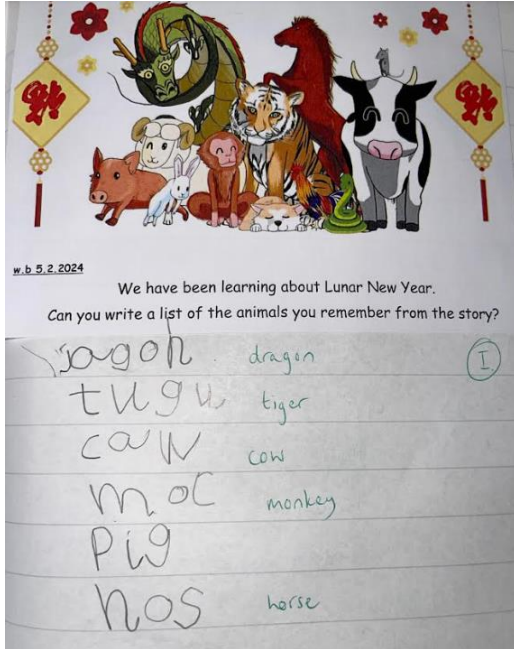 福 福
w.b 5.2.2024
We have been learning about Lunar New Year.
Can you write a list of the animals you remember from the story?
jagon dragon I
tugu tiger
caw cow
moc monkey
pig
hos horse